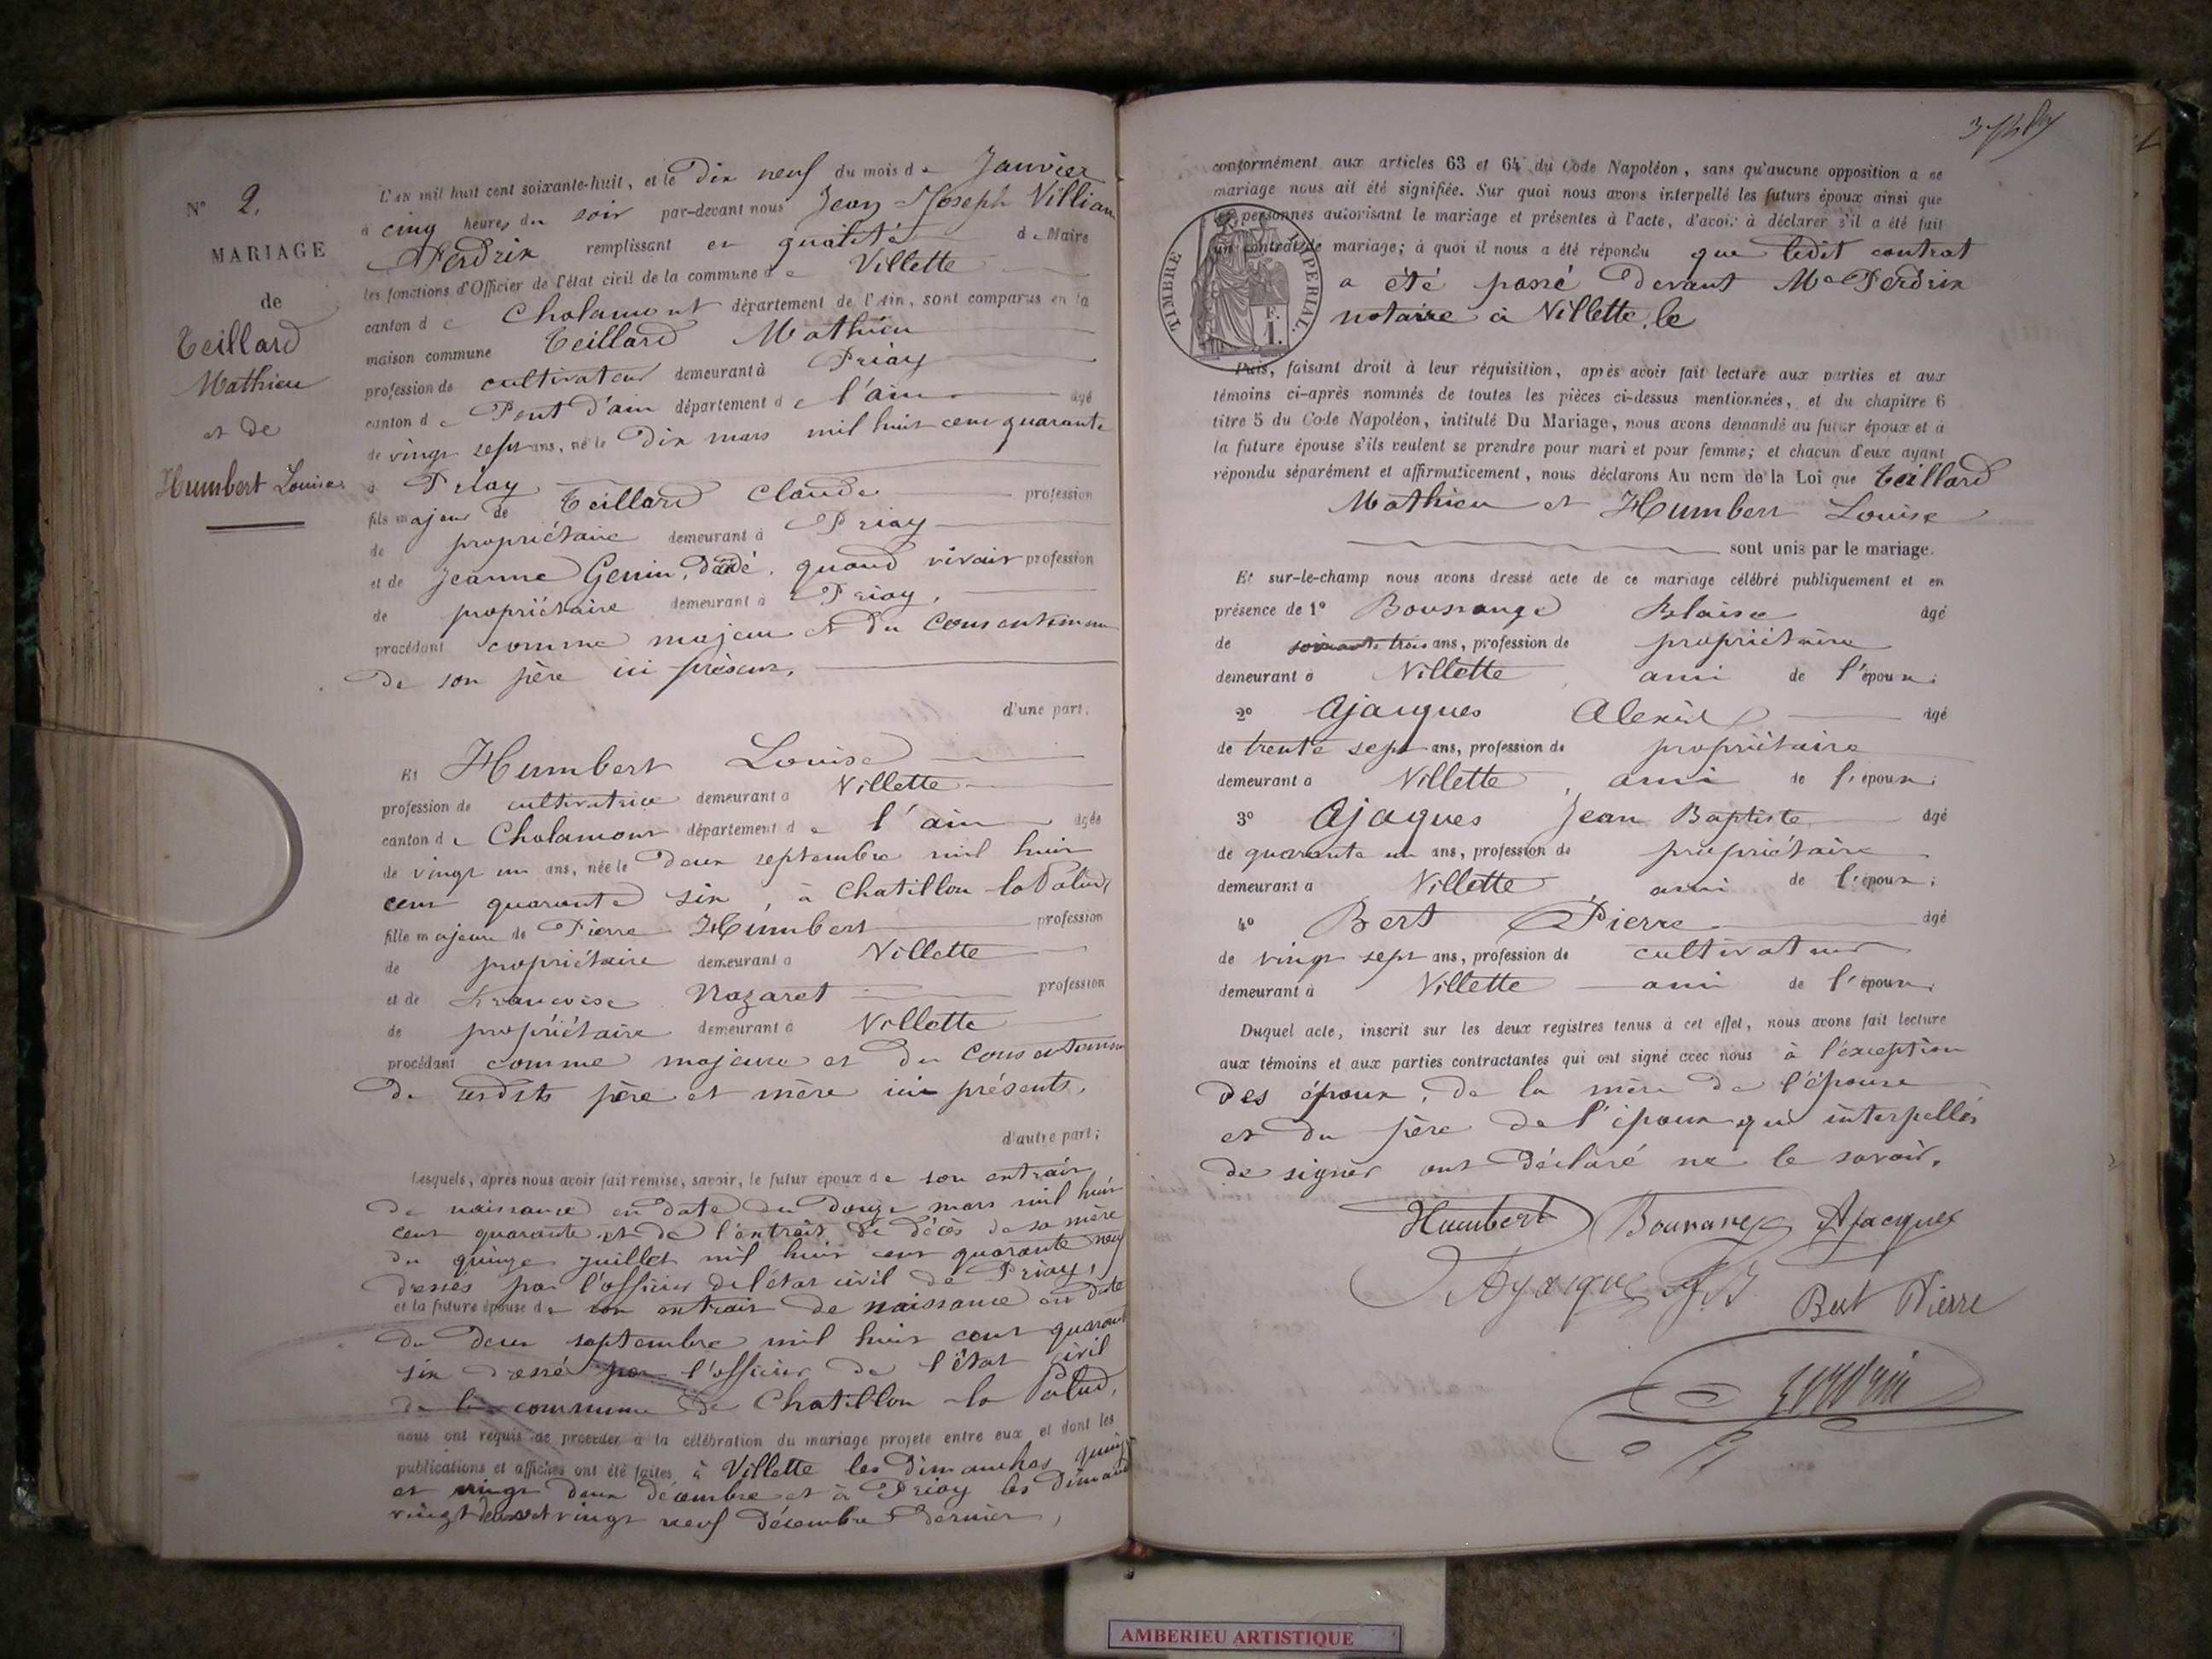 N° 2.
MARIAGE
de
Teillard
Mathieu
et de
Humbert Louise
L'AN mil huit cent soixante-huit, et le Dix neuf du mois de Janvier
à cinq heures du soir par-devant nous Jean Joseph Villian
Perdrix remplissant en qualité de Maire
les fonctions d'Officier de l'état civil de la commune de Villette
canton de Chalamont département de l'Ain, sont comparus en la
maison commune Teillard Mathieu
profession de cultivateur demeurant à Priay
canton de Pont d'ain département de l'ain âgé
de vingt sept ans, né le Dix mars mil huit cent quarante
à Priay
fils majeur de Teillard Claude profession
de propriétaire demeurant à Priay
et de Jeanne Genin, quand vivait profession
de propriétaire demeurant à Priay,
procédant comme majeur et du consentement
de son père ici présent,
d'une part.
Et Humbert Louise
profession de cultivatrice demeurant à Villette
canton de Chalamont département de l'ain âgée
de vingt un ans, née le Deux septembre mil huit
cent quarante six, à Chatillon la Palud,
fille majeure de Pierre Humbert profession
de propriétaire demeurant à Villette
et de Francoise Nazaret profession
de propriétaire demeurant à Villette
procédant comme majeure et du consentement
de sesdits père et mère ici présents,
d'autre part;
Lesquels, après nous avoir fait remise, savoir, le futur époux de son extrait
de naissance en date du Douze mars mil huit
cent quarante et de l'extrait de décès de sa mère
du quinze juillet mil huit cent quarante neuf
dressés par l'officier de l'état civil de Priay,
et la future épouse de son extrait de naissance en date
du deux septembre mil huit cent quarante
six dressé par l'officier de l'état civil
de la commune de Chatillon la Palud,
nous ont requis de procéder à la célébration du mariage projeté entre eux et dont les
publications et affiches ont été faites à Villette les dimanches quinze
et vingt deux décembre et à Priay les Dimanches
vingt deux et vingt neuf Décembre dernier,
conformément aux articles 63 et 64 du Code Napoléon, sans qu'aucune opposition a ce
mariage nous ait été signifiée. Sur quoi nous avons interpellé les futurs époux ainsi que
les personnes autorisant le mariage et présentes à l'acte, d'avoir à déclarer s'il a été fait
un contrat de mariage; à quoi il nous a été répondu que ledit contrat
a été passé devant Me Perdrix
notaire à Villette, le
TIMBRE IMPÉRIAL.
F.
1.
Puis, faisant droit à leur réquisition, après avoir fait lecture aux parties et aux
témoins ci-après nommés de toutes les pièces ci-dessus mentionnées, et du chapitre 6
titre 5 du Code Napoléon, intitulé Du Mariage, nous avons demandé au futur époux et à
la future épouse s'ils veulent se prendre pour mari et pour femme; et chacun d'eux ayant
répondu séparément et affirmativement, nous déclarons Au nom de la Loi que Teillard
Mathieu et Humbert Louise
sont unis par le mariage.
Et sur-le-champ nous avons dressé acte de ce mariage célébré publiquement et en
présence de 1° Boussange Blaise âgé
de soixante trois ans, profession de propriétaire
demeurant à Villette, ami de l'époux;
2° Ajacques Alexis âgé
de trente sept ans, profession de propriétaire
demeurant à Villette, ami de l'époux;
3° Ajaques Jean Baptiste âgé
de quarante un ans, profession de propriétaire
demeurant à Villette, ami de l'époux;
4° Bert Pierre âgé
de vingt sept ans, profession de cultivateur
demeurant à Villette ami de l'époux;
Duquel acte, inscrit sur les deux registres tenus à cet effet, nous avons fait lecture
aux témoins et aux parties contractantes qui ont signé avec nous à l'exception
des époux, de la mère de l'épouse
et du père de l'époux qui interpellés
de signer ont déclaré ne le savoir.
Humbert Ajacques
Bert Pierre
Perdrix
AMBERIEU ARTISTIQUE